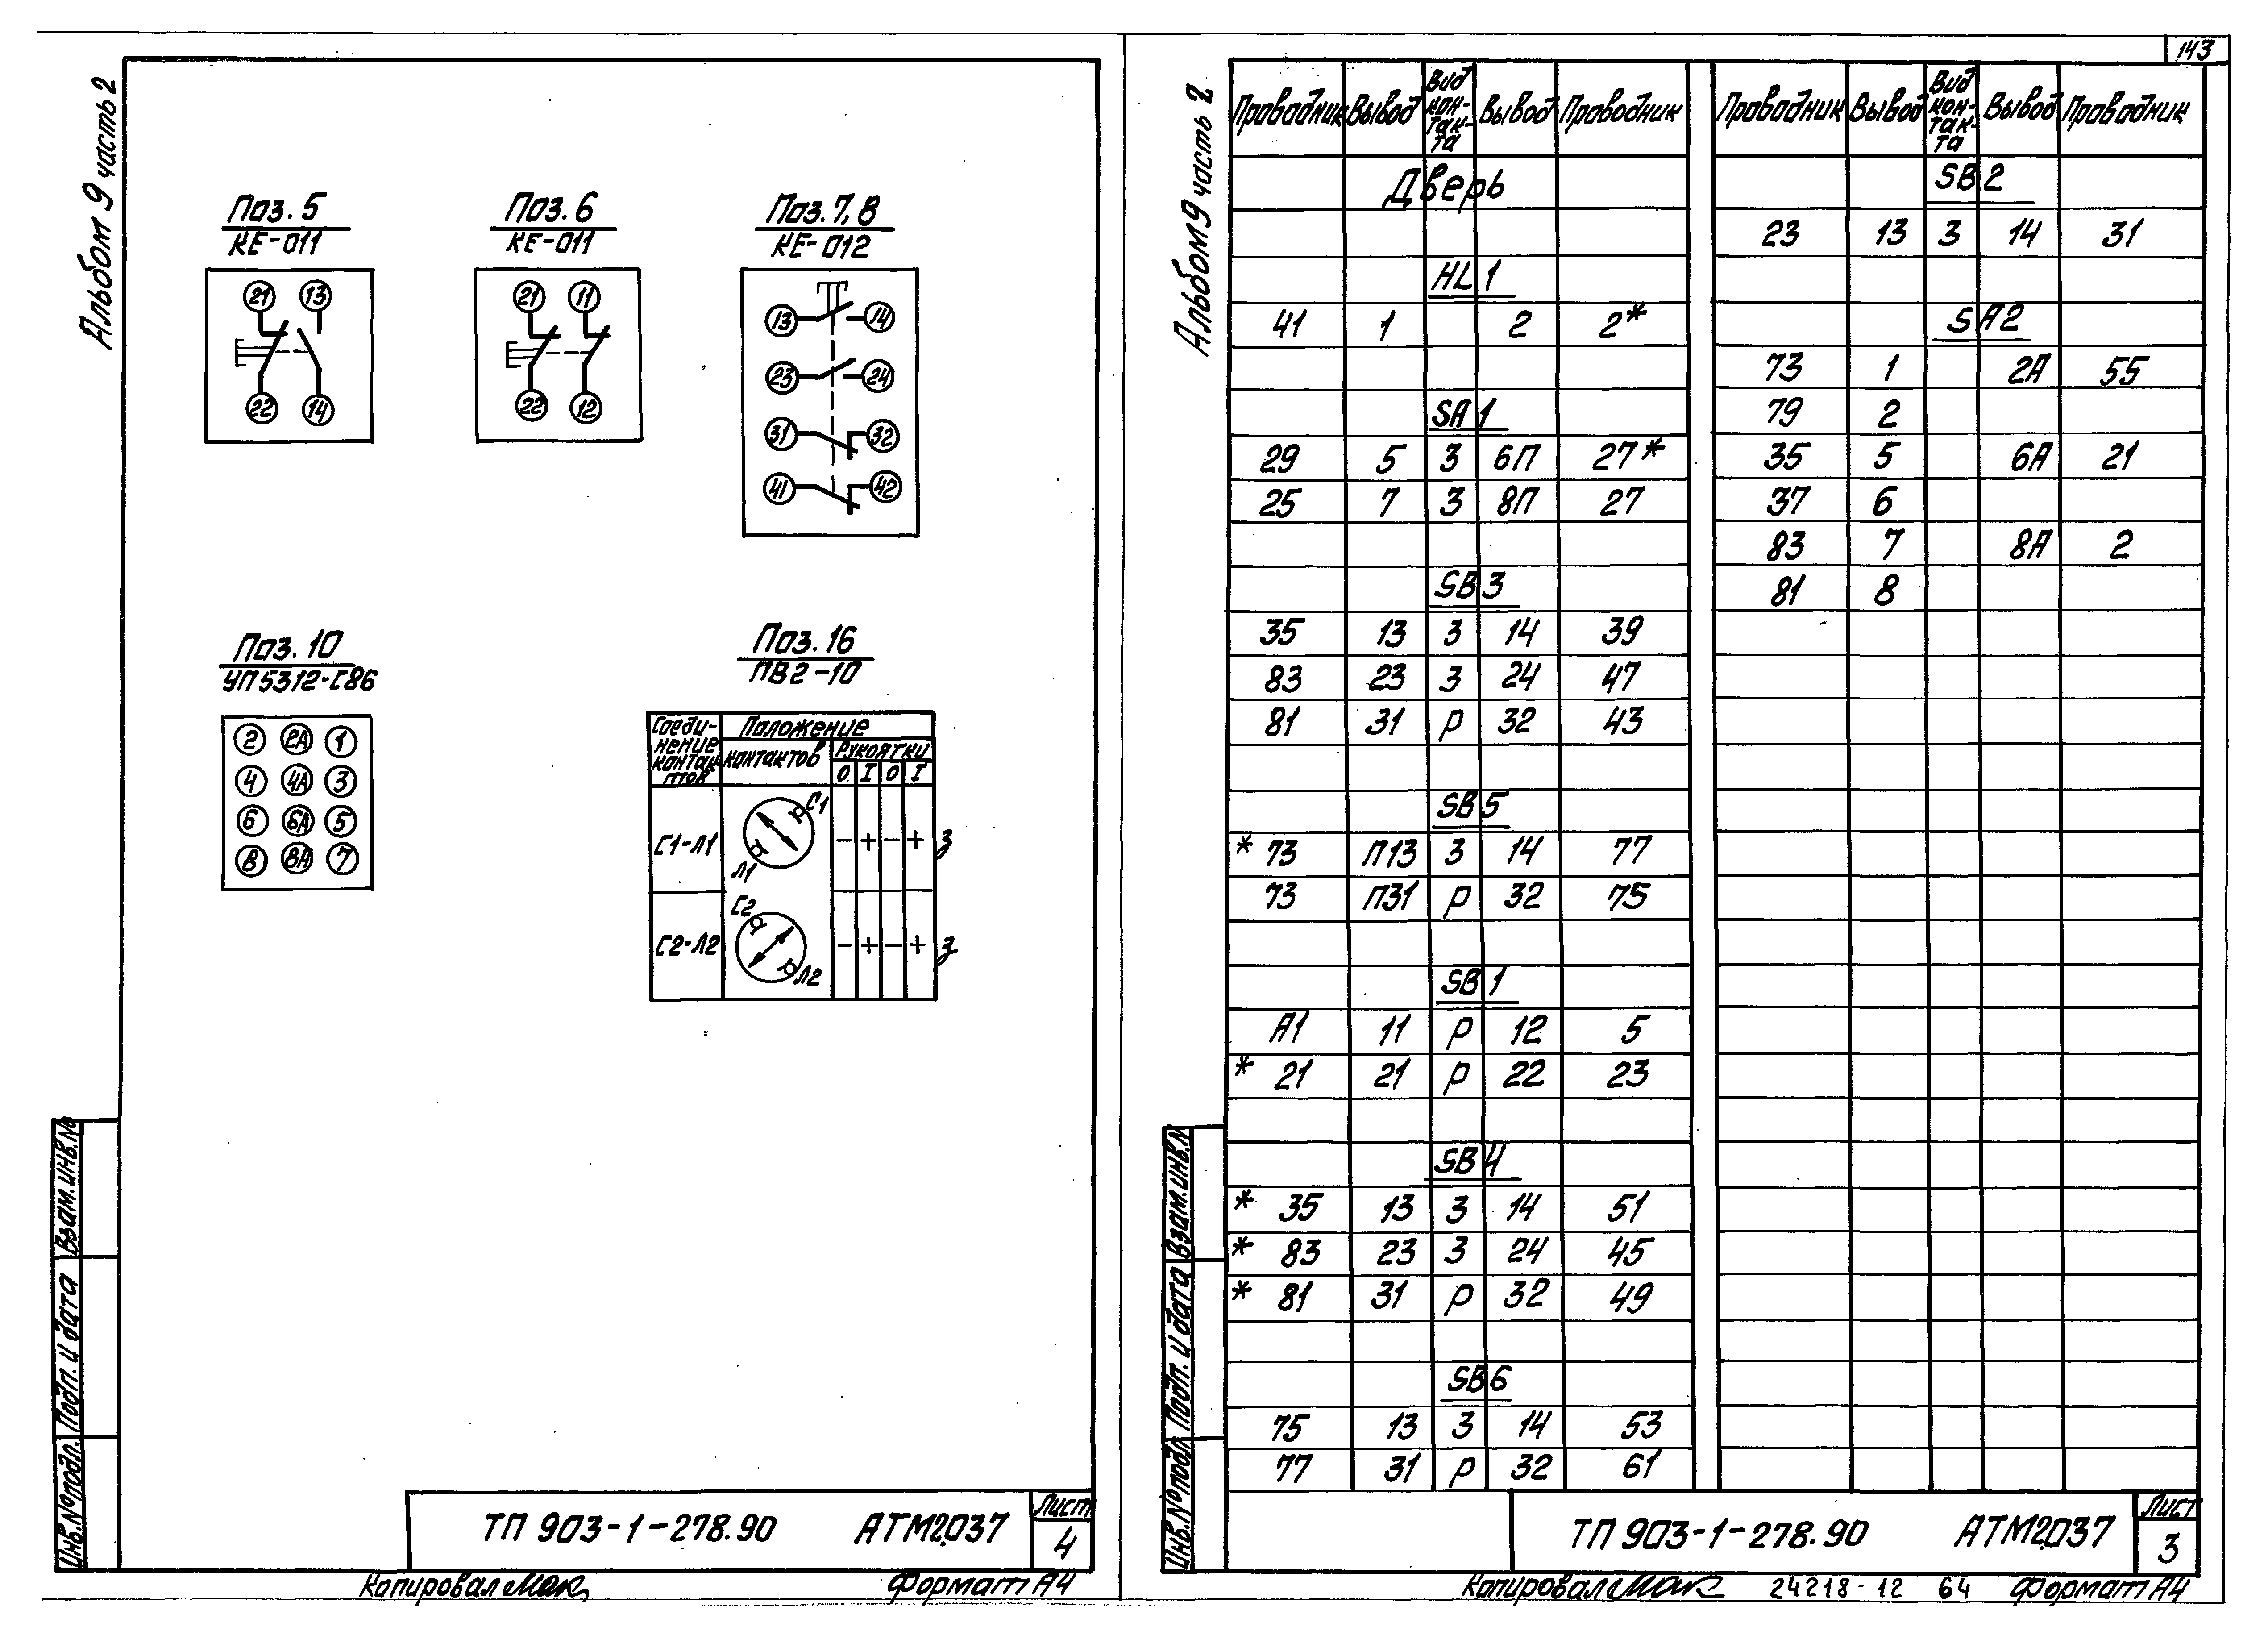 Альбом 9 часть 2
Поз. 5
КЕ-011
21 13
22 14
Поз. 6
КЕ-011
21 11
22 12
Поз. 7, 8
КЕ-012
13 14
23 24
31 32
41 42
Поз. 10
УП5312-С86
2 2А 1
4 4А 3
6 6А 5
8 8А 7
Поз. 16
ПВ2-10
Соеди-
нение
контак-
тов
Положение
контактов
Рукоятки
0 I 0 I
С1-Л1 С1 Л1 - + - + З
С2-Л2 С2 Л2 - + - + З
Взам.инв.№
Подп. и дата
Инв.№подл.
ТП 903-1-278.90 АТМ2.037
Лист
4
Копировал Мак
Формат А4
143
Альбом 9 часть 2
Проводник Вывод Вид кон-так-та Вывод Проводник
Дверь
HL1
41 1 2 2*
SA1
29 5 З 6П 27*
25 7 З 8П 27
SB3
35 13 З 14 39
83 23 З 24 47
81 31 Р 32 43
SB5
* 73 П13 З 14 77
73 П31 Р 32 75
SB1
А1 11 Р 12 5
* 21 21 Р 22 23
SB4
* 35 13 З 14 51
* 83 23 З 24 45
* 81 31 Р 32 49
SB6
75 13 З 14 53
77 31 Р 32 61
Проводник Вывод Вид кон-так-та Вывод Проводник
SB2
23 13 З 14 31
SA2
73 1 2А 55
79 2
35 5 6А 21
37 6
83 7 8А 2
81 8
Взам.инв.№
Подп. и дата
Инв.№подл.
ТП 903-1-278.90 АТМ2.037
Лист
3
Копировал Мак 24218-12 64 Формат А4